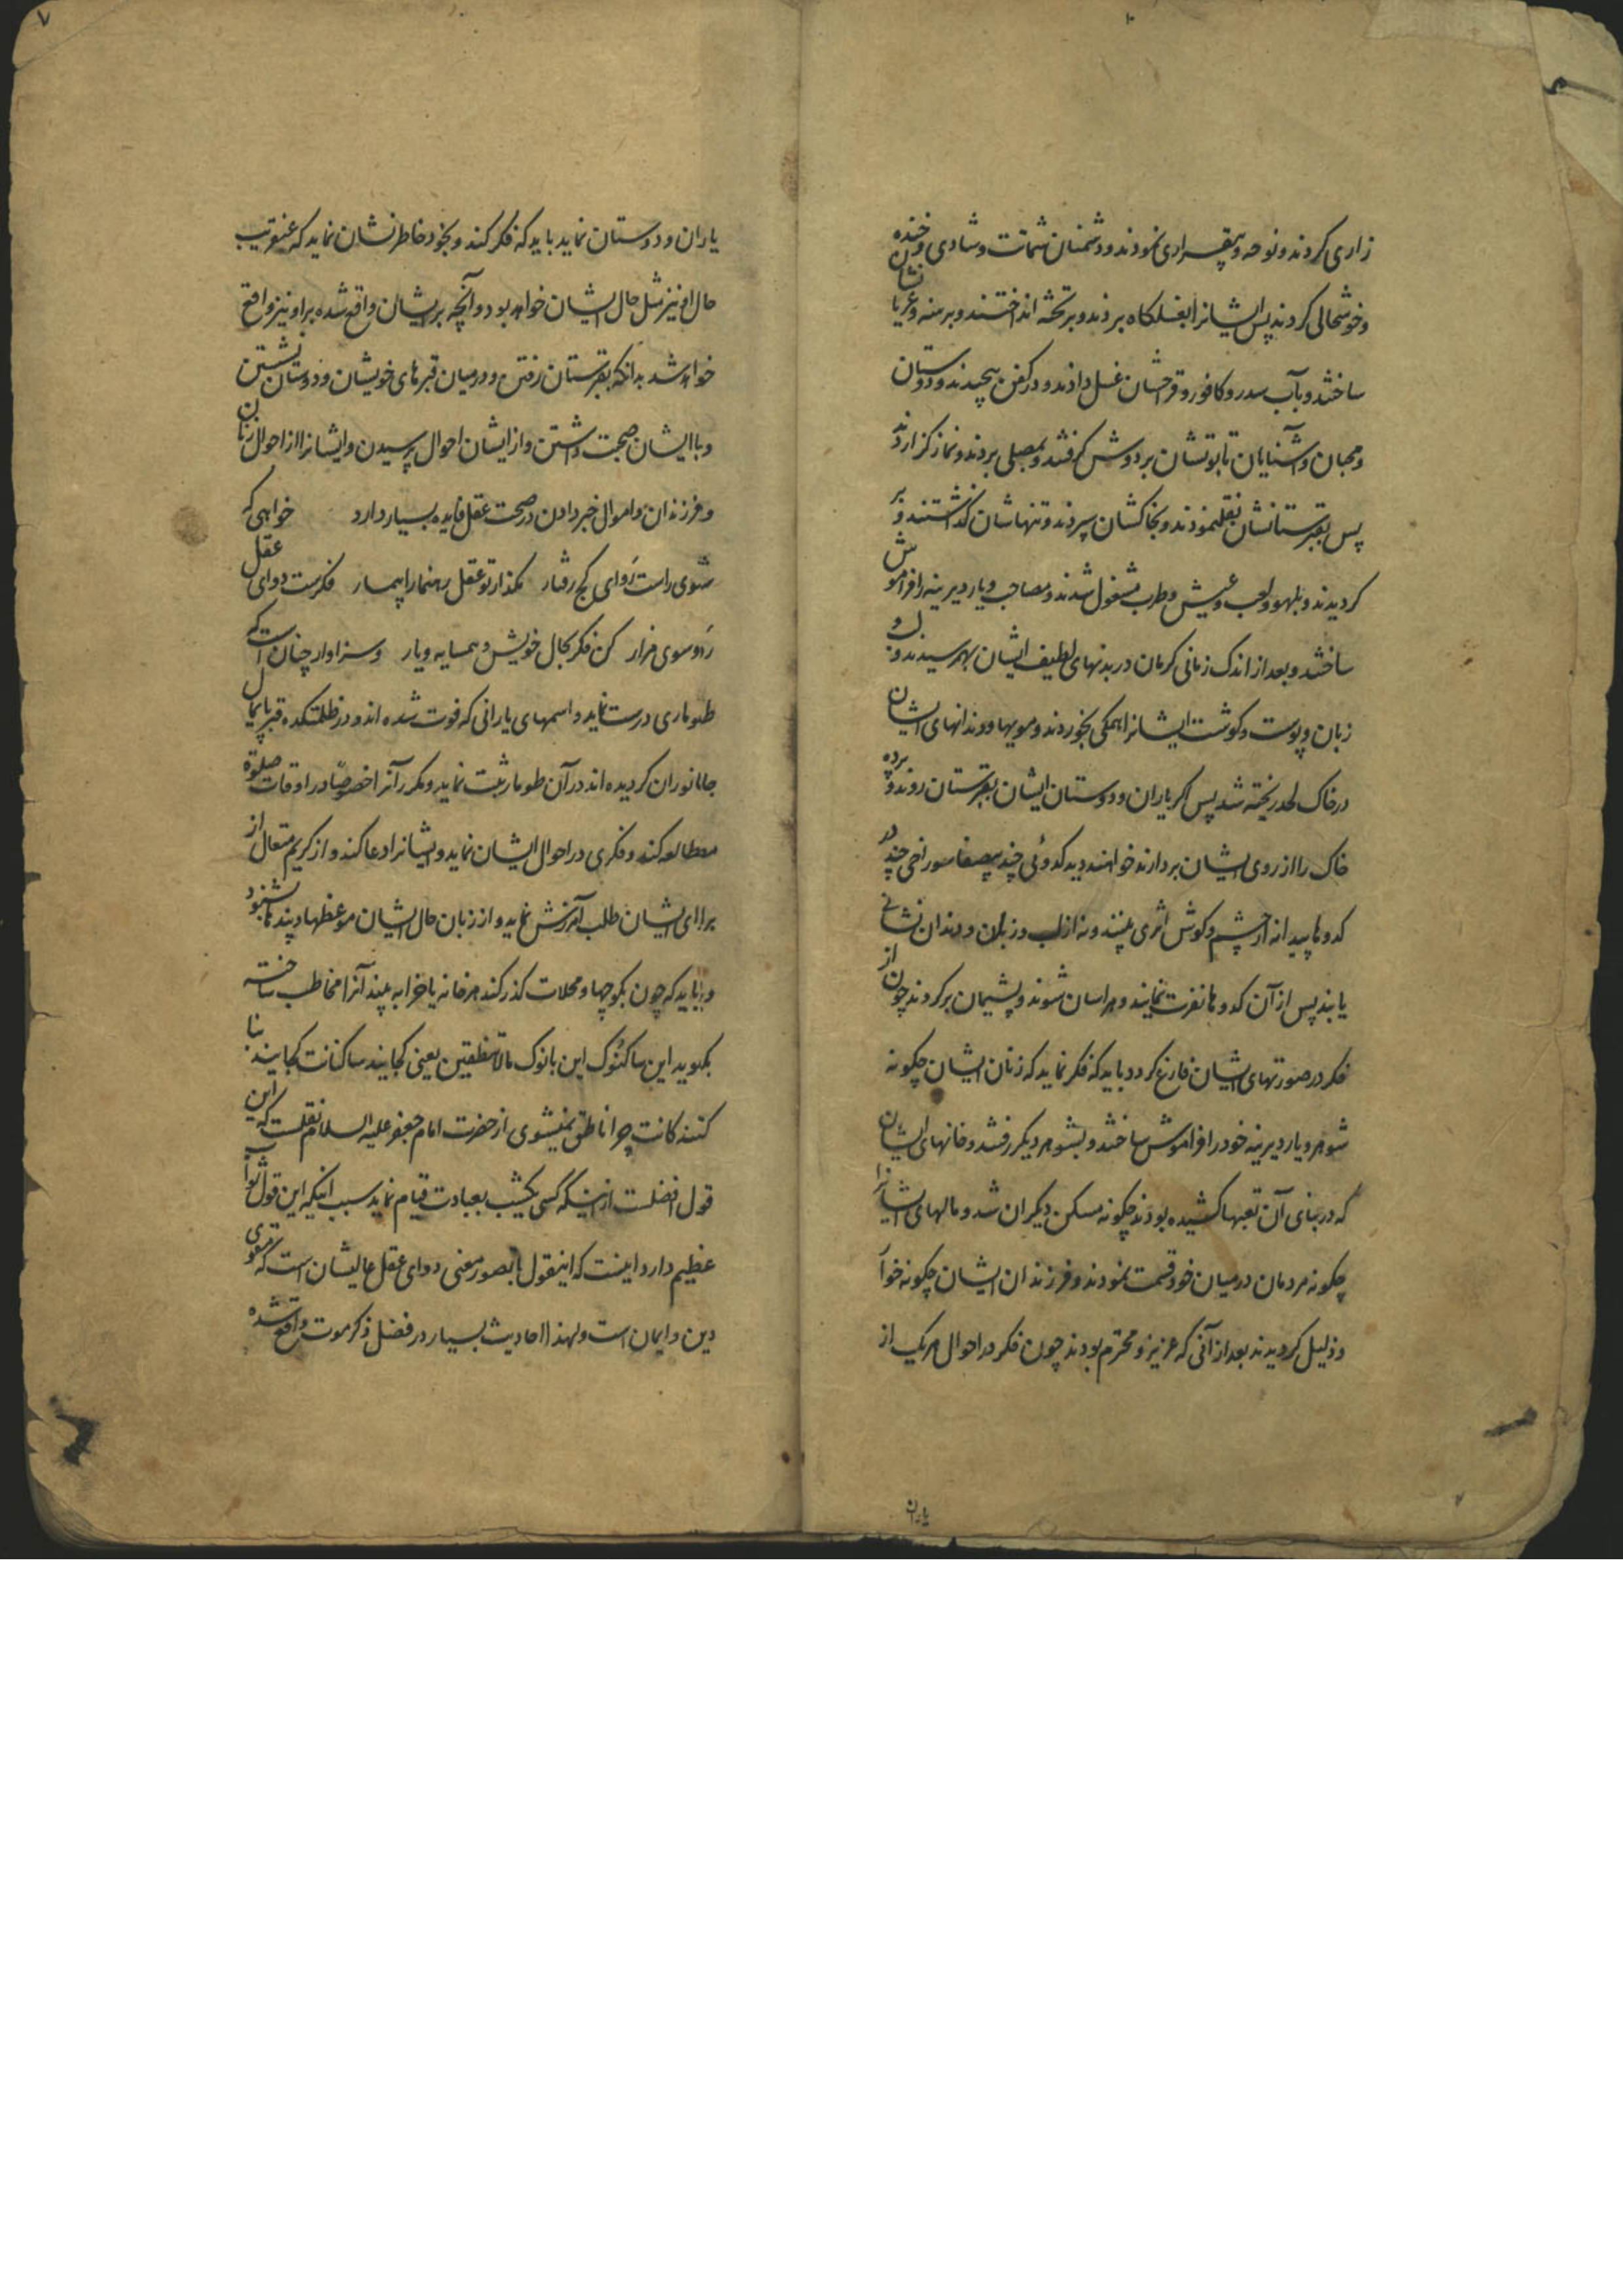 زاری کردند و نوحه و بیقراری نمودند و دشمنان شماتت و شادی و خنده
و خوشحالی کردند پس ایشانرا بغسلکاه بردند و بر تخته انداختند و برهنه و عریانشان
ساختند و بآب سدر و کافور و قراحشان غسل دادند و در کفن پیچیدند و دوستان
و محبان و آشنایان تابوتشان بر دوش کرفتند و بمصلی بردند و نماز کزاردند
پس بقبرستانشان نقلنمودند و بخاکشان سپردند و تنهاشان کذاشتند و بر
کردیدند و بلهو و لعب و عیش و طرب مشغول شدند و مصاحب و یار دیرینه را فراموش
ساختند و بعد از اندک زمانی کرمان در بدنهای لطیف ایشان بهم رسیدند و لب و
زبان و پوست و کوشت ایشانرا همکی بخوردند و مویها و دندانهای ایشان
در خاک لحد ریخته شد پس اکر یاران و دوستان ایشان بقبرستان روند و پرده
خاک را از روی ایشان بردارند خواهند دید کدوئی چند بیصفا سوراخی چند در
کدوها پیدا نه از چشم و کوش اثری بینند و نه از لب و زبان و دندان نشانی
یابند پس از آن کدوها نفرت نمایند و هراسان شوند و پشیمان برکردند چون از
فکر در صورتهای ایشان فارغ کردد باید که فکر نماید که زنان ایشان چکونه
شوهر و یار دیرینه خود را فراموش ساختند و بشوهر دیکر رفتند و خانهای ایشان
که در بنای آن تعبها کشیده بودند چکونه مسکن دیکران شد و مالهای ایشانرا
چکونه مردمان در میان خود قسمت نمودند و فرزندان ایشان چکونه خوار
و ذلیل کردیدند بعد از آنی که عزیز و محترم بودند چون فکر در احوال هر یک از
یاران
یاران و دوستان نماید باید که فکر کند و بخود خاطر نشان نماید که عنقریب
حال او نیز مثل حال ایشان خواهد بود و آنچه بر ایشان واقع شده بر او نیز واقع
خواهد شد بدانکه بقبرستان رفتن و در میان قبرهای خویشان و دوستان نشستن
و با ایشان صحبت داشتن و از ایشان احوال پرسیدن و ایشانرا از احوال زنان
و فرزندان و اموال خبر دادن در صحت عقل فایده بسیار دارد خواهی که
شوی راست رو ای کج رفتار مکذار تو عقل رهنما را بیمار فکرست دوای عقل
رو سوی مزار کن فکر بحال خویش و همسایه و یار و سزاوار چنان است که
طوماری درست نماید و اسمهای یارانی که فوت شده اند و در ظلمتکده قبر پایمال
جانوران کردیده اند در آن طومار ثبت نماید و مکرر آنرا خصوصا در اوقات صلوة
مطالعه کند و فکری در احوال ایشان نماید و ایشانرا دعا کند و از کریم متعال از
برای ایشان طلب آمرزش نماید و از زبان حال ایشان موعظها و پندها بشنود
و باید که چون بکوچها و محلات کذر کند هر خانه یا خرابه بیند آنرا مخاطب ساخته
بکوید این ساکنوک این بانوک مالک لا تنطقین یعنی کجایند ساکنانت کجایند بنا
کنندکانت چرا ناطق نمیشوی از حضرت امام جعفر علیه السلام نقلست که این
قول افضلست از اینکه کسی یکشب بعبادت قیام نماید سبب اینکه این قول ثواب
عظیم دارد اینست که اینقول با تصور معنی دوای عقل عالیشان است که مقوی
دین و ایمان است و لهذا احادیث بسیار در فضل ذکر موت واقع شده